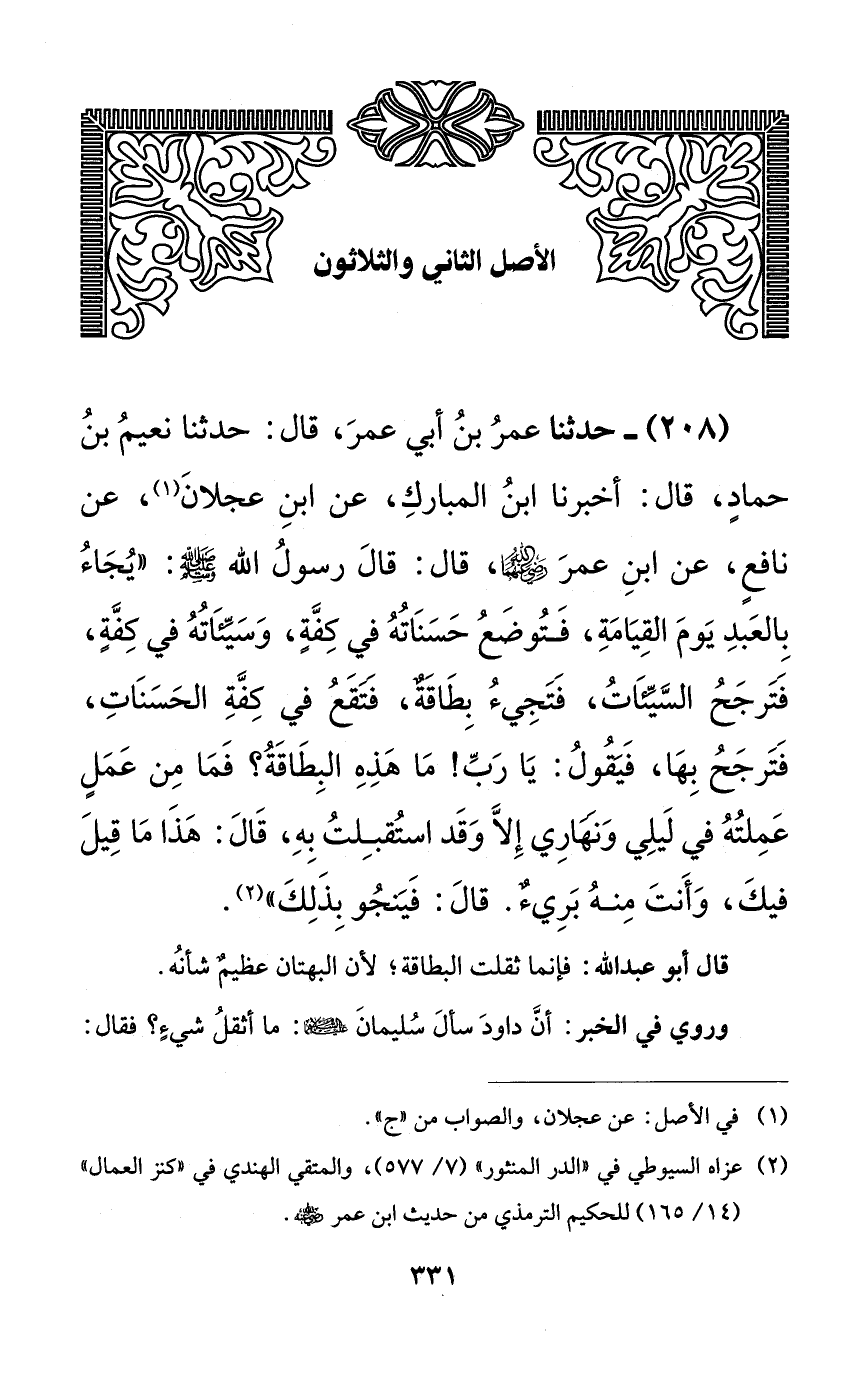 الأصل الثاني والثلاثون
(٢٠٨) ـ حدثنا عمرُ بنُ أبي عمرَ، قال: حدثنا نعيمُ بنُ
حمادٍ، قال: أخبرنا ابنُ المباركِ، عن ابنِ عجلانَ(١)، عن
نافعٍ، عن ابنِ عمرَ رضي الله عنهما، قال: قالَ رسولُ الله ﷺ: «يُجَاءُ
بِالعَبدِ يَومَ القِيَامَةِ، فَتُوضَعُ حَسَنَاتُهُ في كِفَّةٍ، وَسَيِّئَاتُهُ في كِفَّةٍ،
فَتَرجَحُ السَّيِّئَاتُ، فَتَجِيءُ بِطَاقَةٌ، فَتَقَعُ في كِفَّةِ الحَسَنَاتِ،
فَتَرجَحُ بِهَا، فَيَقُولُ: يَا رَبِّ! مَا هَذِهِ البِطَاقَةُ؟ فَمَا مِن عَمَلٍ
عَمِلتُهُ في لَيلِي وَنَهَارِي إِلاَّ وَقَد استُقبِلتُ بِهِ، قَالَ: هَذَا مَا قِيلَ
فيكَ، وَأَنتَ مِنهُ بَرِيءٌ. قالَ: فَيَنجُو بِذَلِكَ»(٢).
قال أبو عبدالله: فإنما ثقلت البطاقة؛ لأن البهتان عظيمٌ شأنُه.
وروي في الخبر: أنَّ داودَ سألَ سُليمانَ عليهما السلام: ما أثقلُ شيءٍ؟ فقال:
(١) في الأصل: عن عجلان، والصواب من «ج».
(٢) عزاه السيوطي في «الدر المنثور» (٧/ ٥٧٧)، والمتقي الهندي في «كنز العمال»
(١٤/ ١٦٥) للحكيم الترمذي من حديث ابن عمر رضي الله عنه.
٣٣١